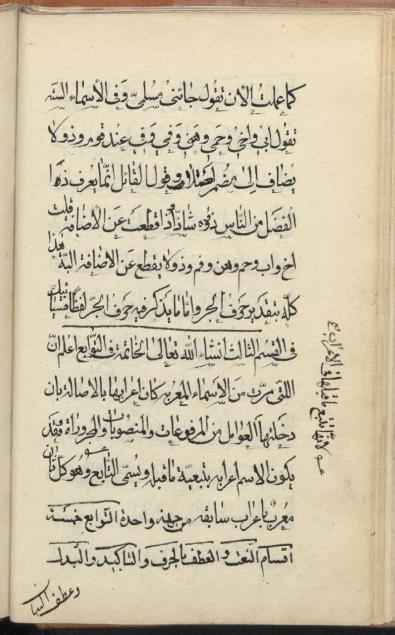 كما علمت الان تقول جائنى مسلمىّ وفى الأسماء السته
تقول ابى واخى وحمى وهنى وفى وفمى عند قوم وذو لا
يضاف الى مضمر اصلا وقول القائل انما يعرف ذا
الفضل من الناس ذووه شاذ واذا قطعت عن الاضافة قلت
اخ واب وحم وهن وفم وذو لا يقطع عن الاضافة البتة هذا
كله بتقدير حرف الجر واما ما يذكر فيه حرف الجر لفظا فسياتيك
فى القسم الثالث انشاء الله تعالى الخاتمة فى التوابع اعلم ان
اللتى مرّت من الاسماء المعربة كان اعرابها بالاصالة بان
دخلتها العوامل من المرفوعات والمنصوبات والمجرورات فقد
يكون الاسم اعرابه بتبعية ما قبله ويسمى التابع وهو كل ثان
معرب باعراب سابقه من جهة واحدة التوابع خمسة
اقسام النعت والعطف بالحرف والتاكيد والبدل
وعطف البيان
لانه يتبع ما قبله فى الاعراب